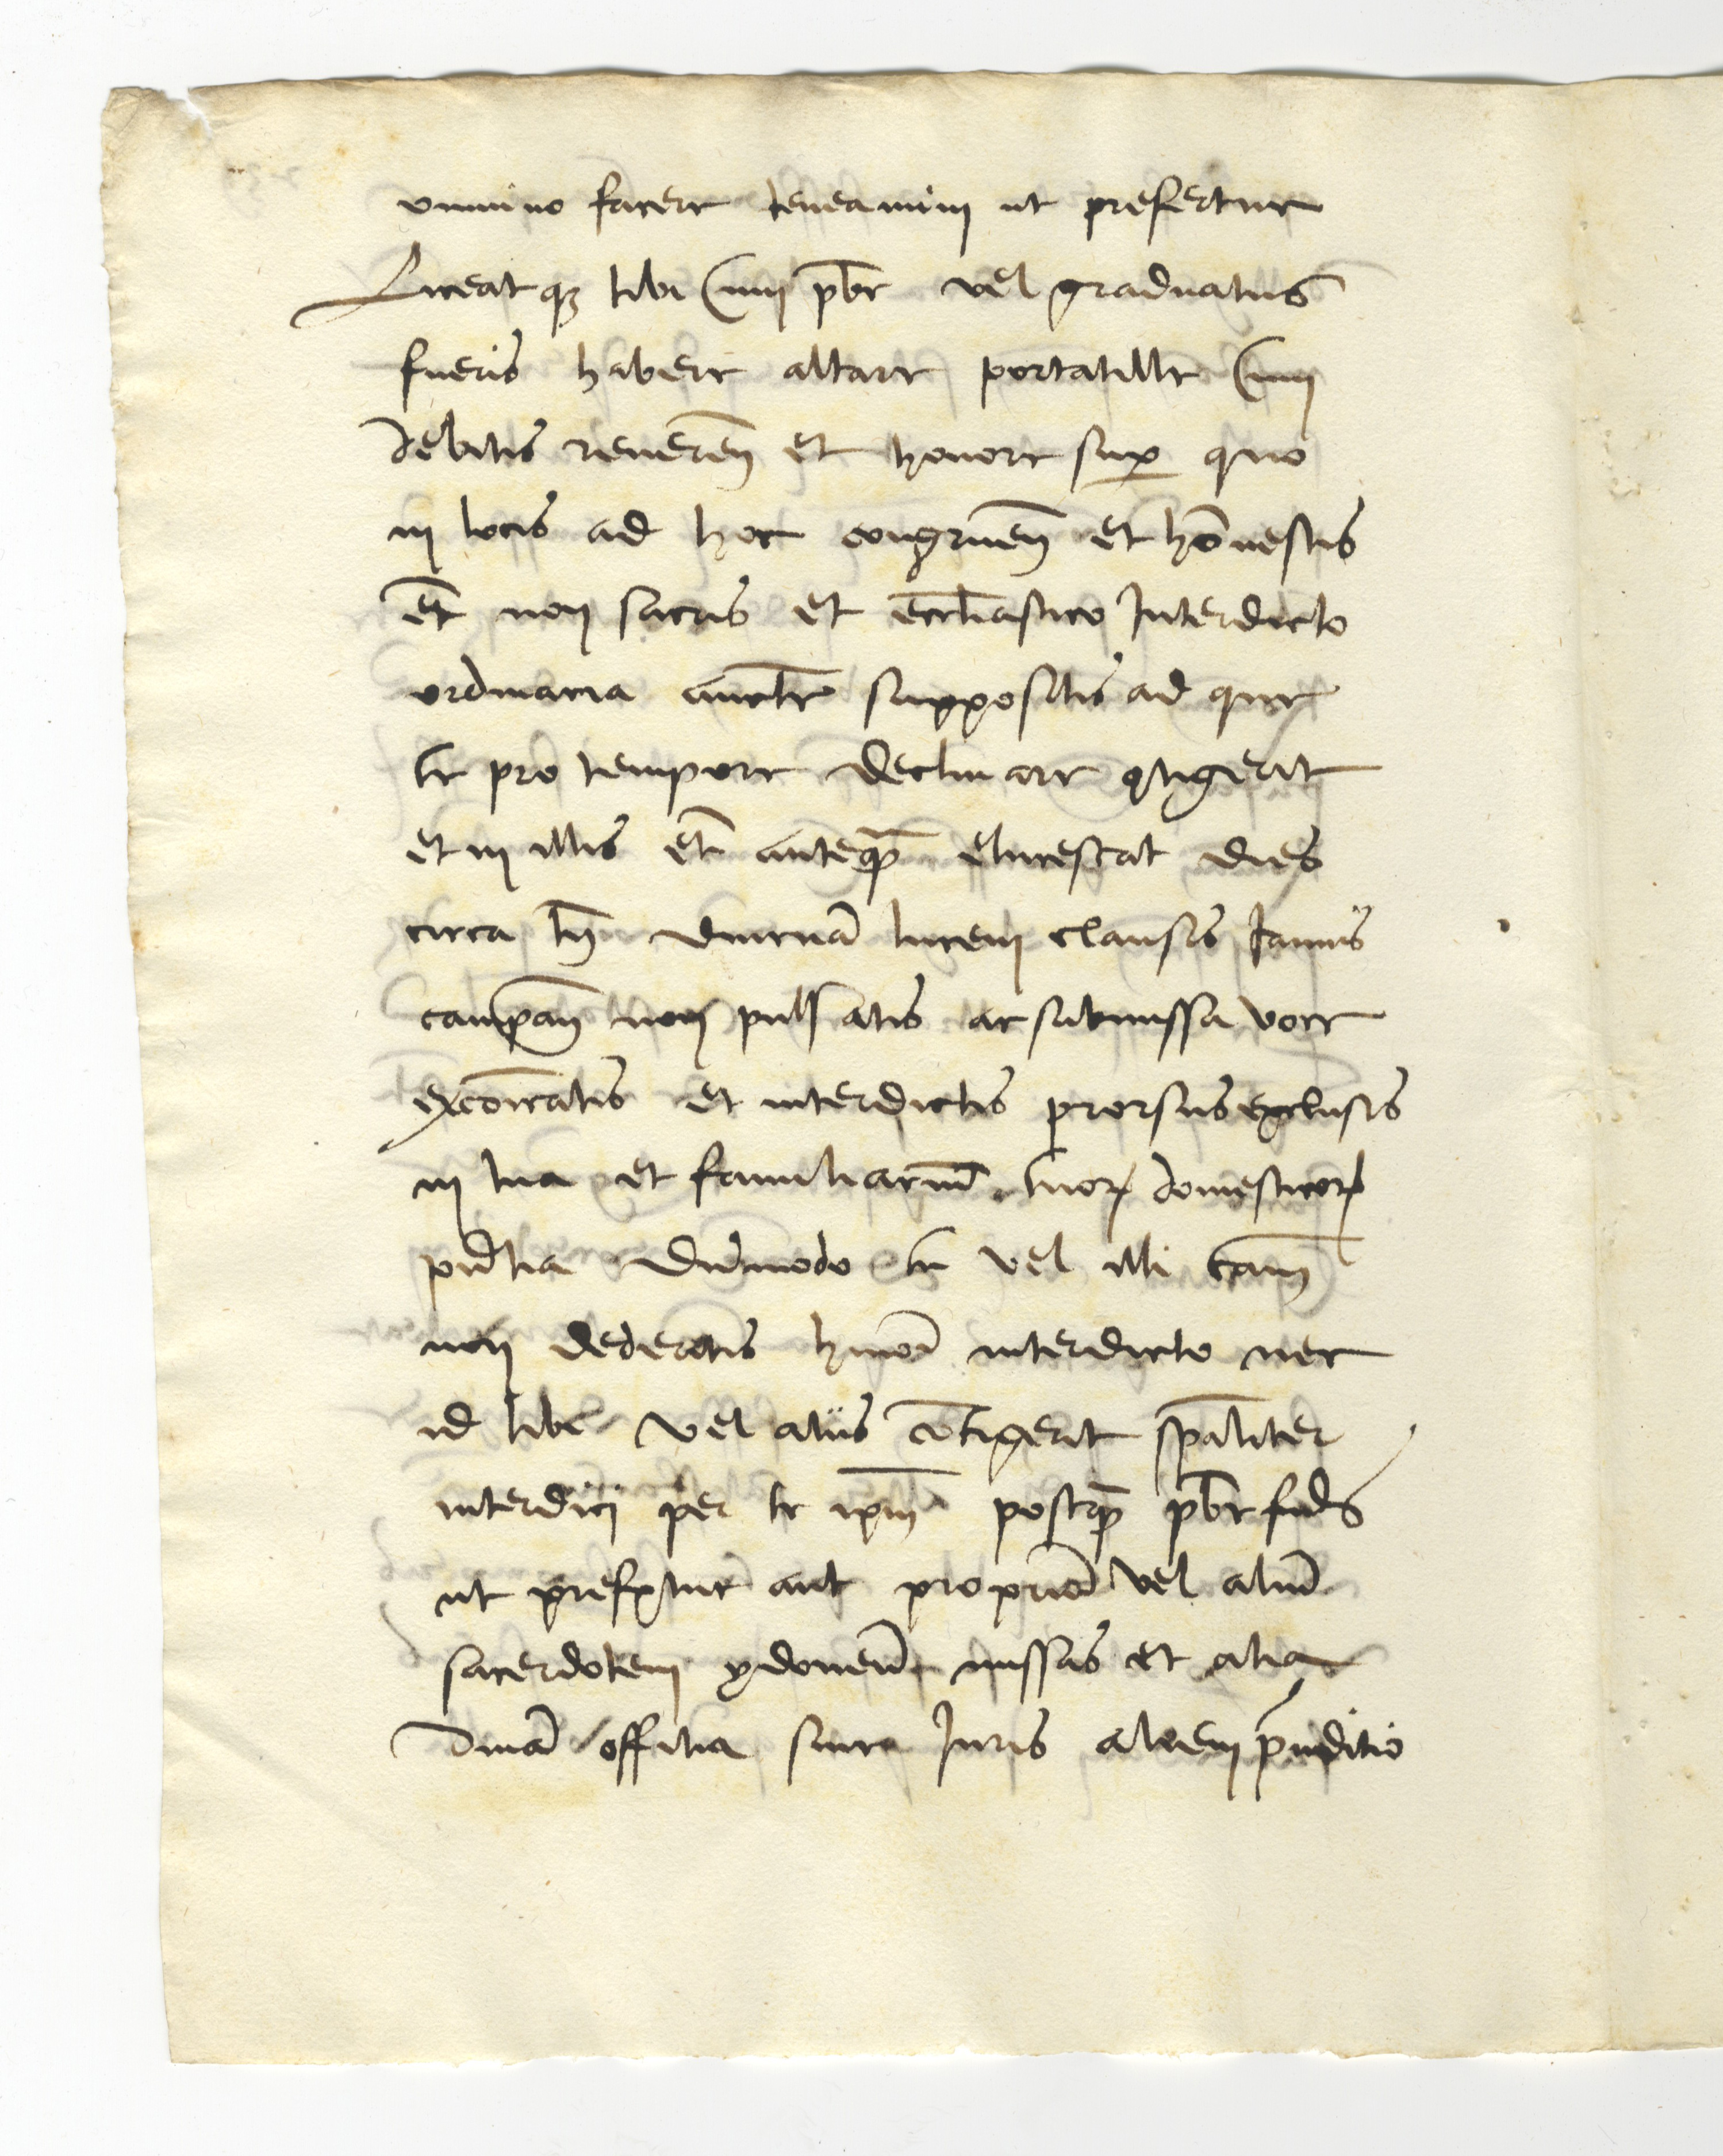 omnino facere teneamini ut prefertur
Liceatq3 tibi Cum pbr vel graduatus
fueris habere altare portatille Cum
debitis reueren et honore sup quo
in locis ad hoc congruen et honnestis
et non sacris et eccliastico Interdicto
ordinaria auctte suppositis ad que
te pro tempore declinare contigerit
et in illis et anteq̃ elucescat dies
circa tn diurnã lucem clausis Ianuis
campan non pulsatis ac submissa voce
excoicatis et interdictis prorsus exclusis
in tua et familiariũ tuorꝝ domesticorꝝ
pntia dũmodo tu vel illi cam
non dederitis hmoi interdicto nec
id tibi vel aliis cõtigerit spaliter
interdici per te ipm postq̃ pbr fueris
ut prefertur aut propriũ vel aliũ
sacerdotem ydoneũ missas et alia
diuiã offitia sine Iuris alieni preiuditio